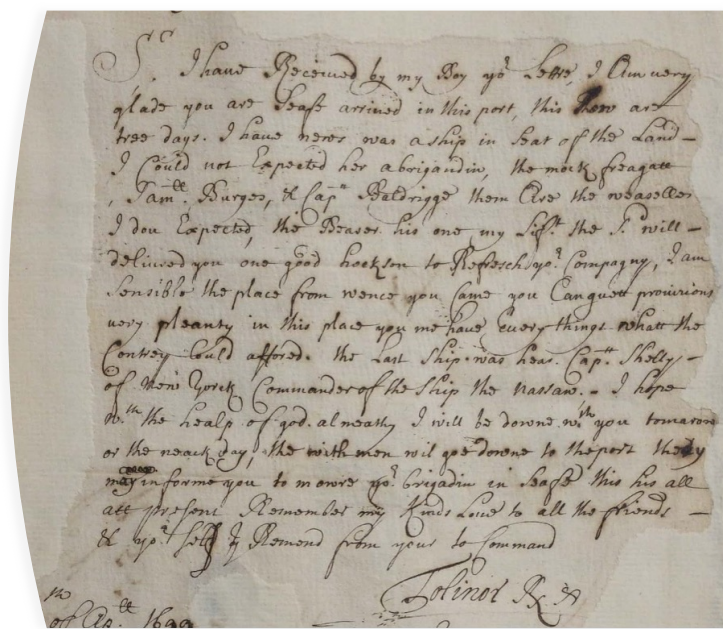 Sr. I have Received by my Boy yor Letter, I Am very
glade you are Seafe arrived in this port, this are
tree days. I have never was a ship in Seat of the Land –
I Could not Expected her abrigandin, the freagatt
, Samll. Burges, & Capn Baldrigge them Are the weaselles
I dou Expected, the Bearer his one my the Sr. will –
delivred you one good hookson to Refresch yor. Compagny, I am
Sensible the place from wence you Came you Canguett provisions
very pleanty in this place you me have Every things whatt the
Contrey Could affored. the Last Ship was hear. Capt. Shelly –
of New Yorck Commander of the Ship the Nassaw. – I hope
wth the healp of god. almeathy I will be downe with you tomarow
or the neack day, the with men wil goe downe to the port they
may informe you to moure yor. brigadin in Seafe this his all
att present Remember my Kinds Love to all the friends –
& yor. Self I Remend from your to Command
Tolinor Rx
th
of 1699